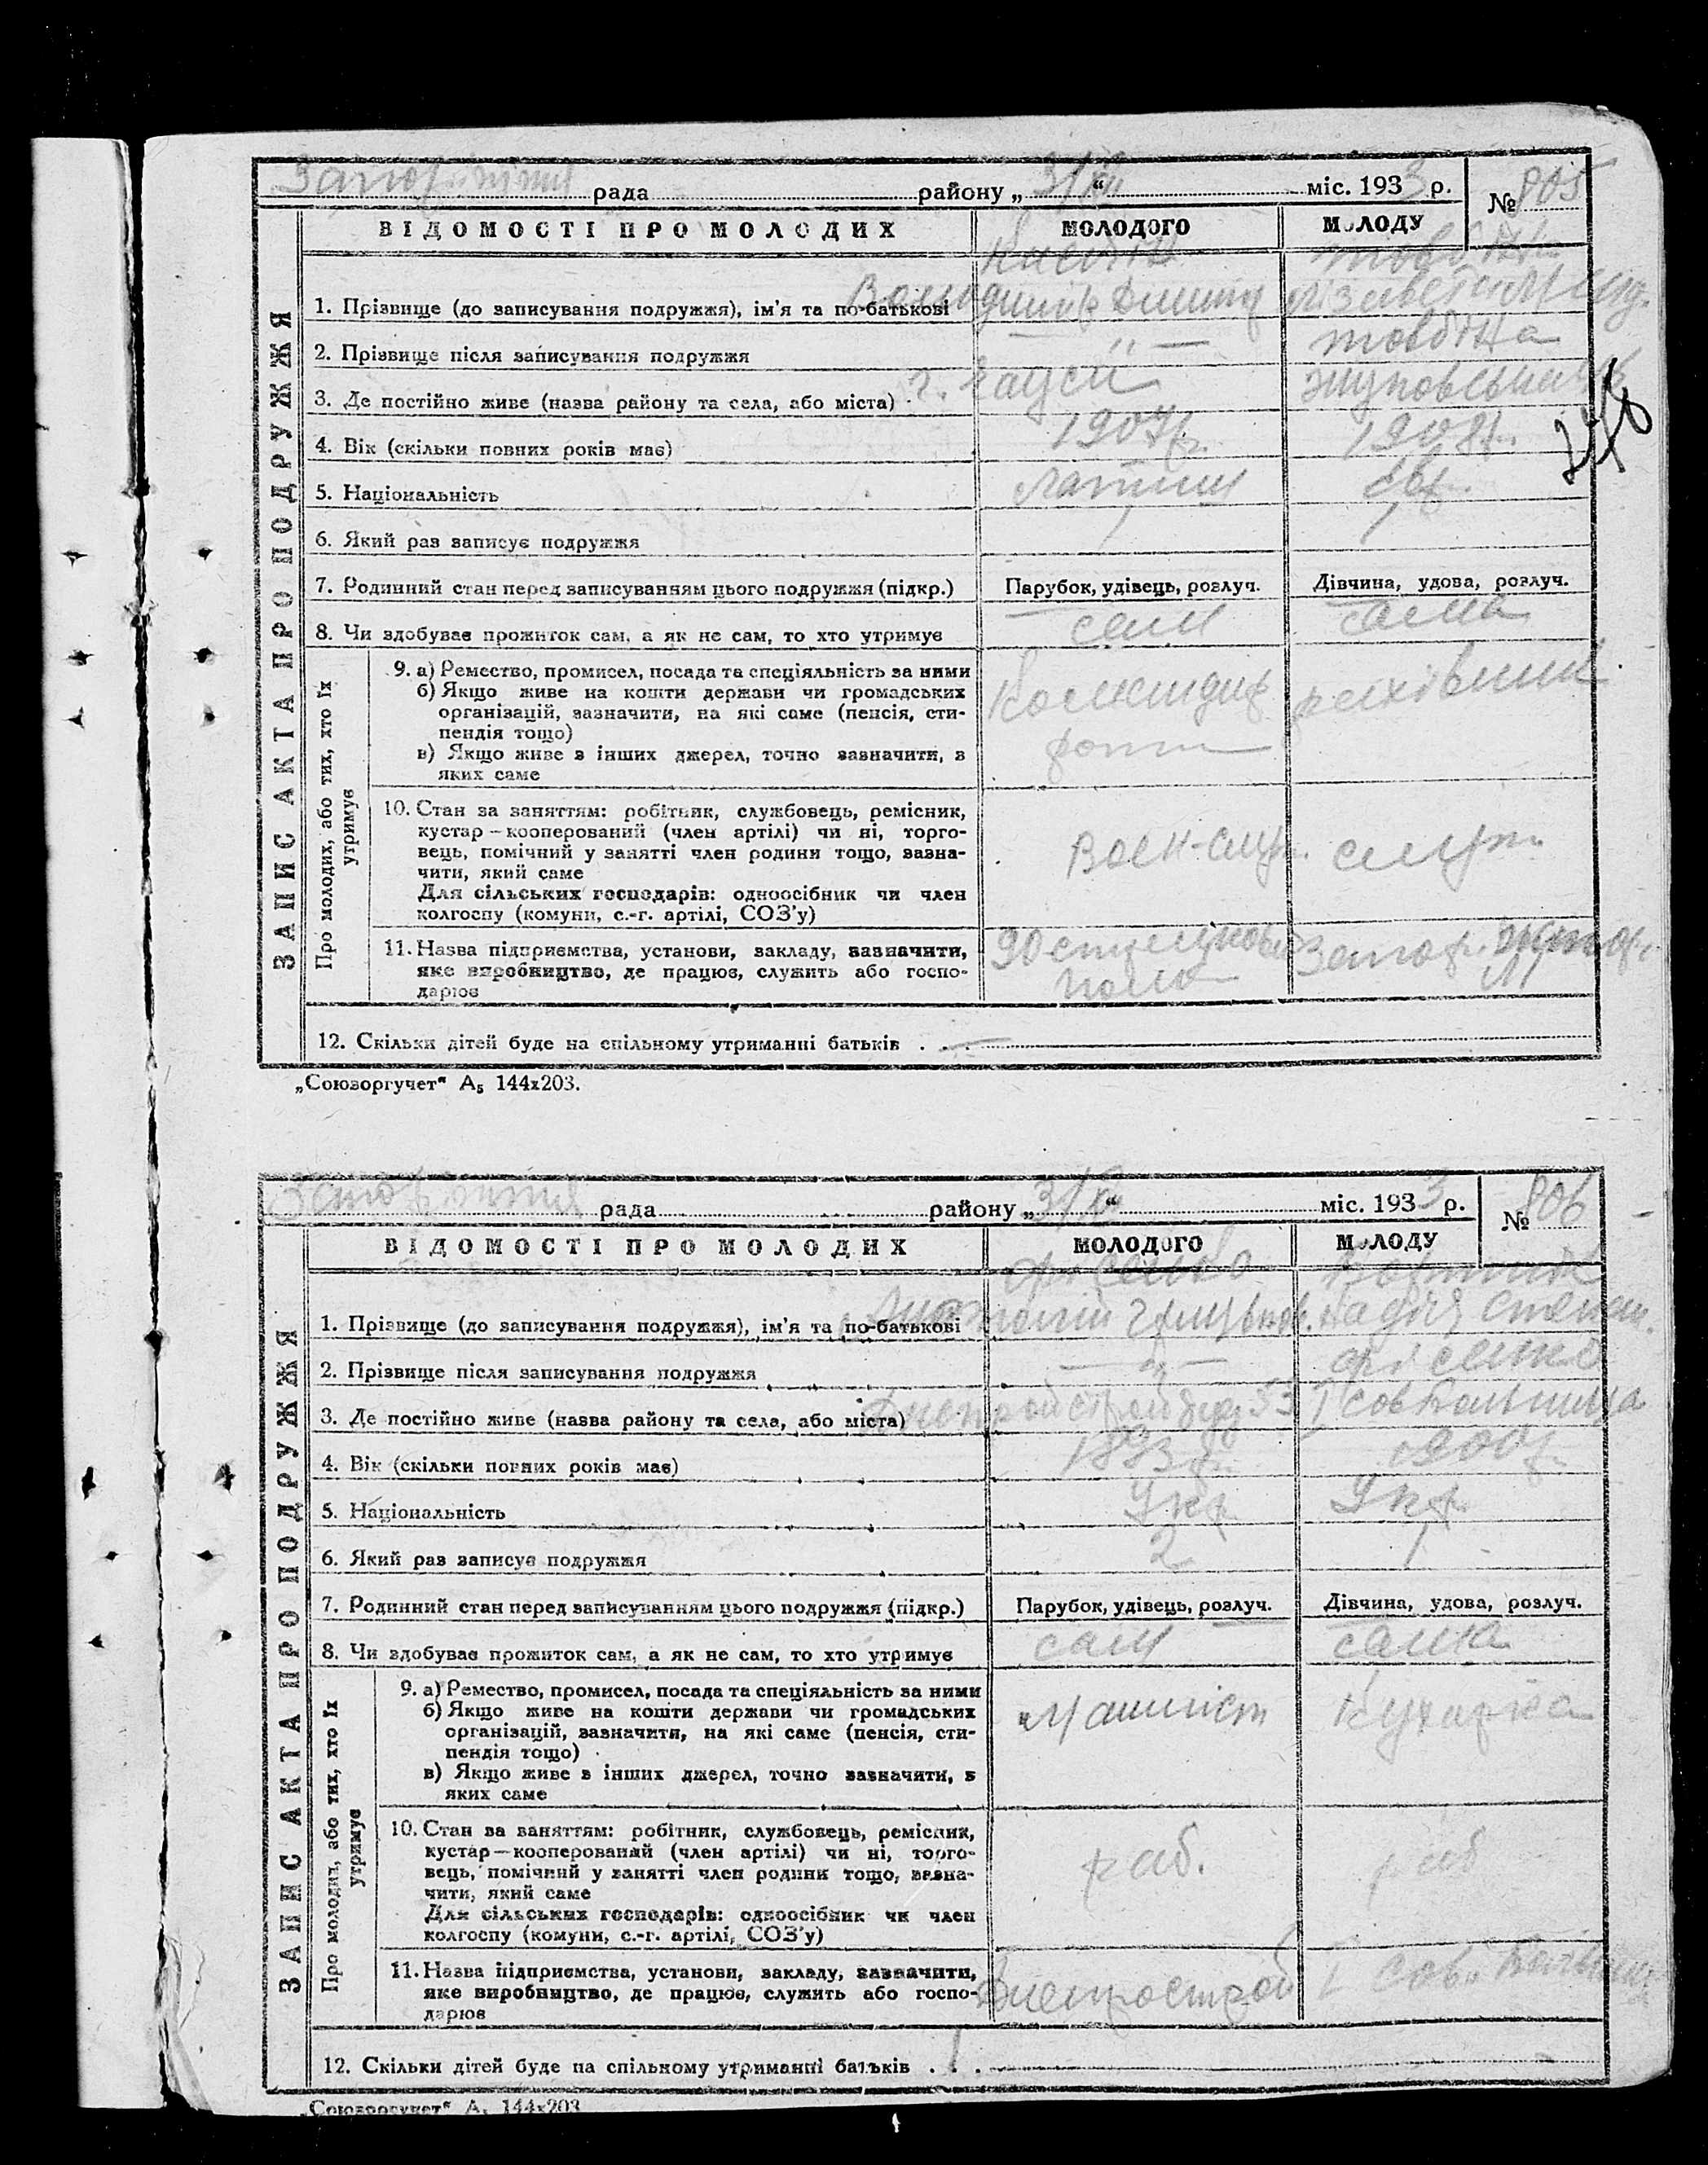 Запоріжжя рада району „31/XII“ міс. 1933 р. № 805
ВІДОМОСТІ ПРО МОЛОДИХ МОЛОДОГО МОЛОДУ
ЗАПИС АКТА ПРО ПОДРУЖЖЯ
1. Прізвище (до записування подружжя), ім'я та по-батькові
2. Прізвище після записування подружжя — " — Товбіна
3. Де постійно живе (назва району та села, або міста) г.
4. Вік (скільки повних років має) 1907 р. 1908 р.
5. Національність Латиш Євр.
6. Який раз записує подружжя 1 1
7. Родинний стан перед записуванням цього подружжя (підкр.) Парубок, удівець, розлуч. Дівчина, удова, розлуч.
8. Чи здобуває прожиток сам, а як не сам, то хто утримує сам сама
Про молодих, або тих, хто їх утримує
9. а) Ремество, промисел, посада та спеціяльність за ними
б) Якщо живе на кошти держави чи громадських
організацій, зазначити, на які саме (пенсія, сти-
пендія тощо)
в) Якщо живе з інших джерел, точно зазначити, з
яких саме
Командир рахівник
роти
10. Стан за заняттям: робітник, службовець, ремісник,
кустар — кооперований (член артілі) чи ні, торго-
вець, помічний у занятті член родини тощо, зазна-
чити, який саме
Для сільських господарів: одноосібник чи член
колгоспу (комуни, с.-г. артілі, СОЗ'у)
Воен-служ. служ.
11. Назва підприємства, установи, закладу, зазначити,
яке виробництво, де працює, служить або госпо-
дарює
90 Запор.
12. Скільки дітей буде на спільному утриманні батьків . . —
„Союзоргучет“ А₅ 144х203.
Запоріжжя рада району „31/XII“ міс. 1933 р. № 806
ВІДОМОСТІ ПРО МОЛОДИХ МОЛОДОГО МОЛОДУ
ЗАПИС АКТА ПРО ПОДРУЖЖЯ
1. Прізвище (до записування подружжя), ім'я та по-батькові Надія Степан.
2. Прізвище після записування подружжя — " —
3. Де постійно живе (назва району та села, або міста) 53 І Сов больница
4. Вік (скільки повних років має) 1893 р. 1900 р.
5. Національність Укр. Укр.
6. Який раз записує подружжя 2 1
7. Родинний стан перед записуванням цього подружжя (підкр.) Парубок, удівець, розлуч. Дівчина, удова, розлуч.
8. Чи здобуває прожиток сам, а як не сам, то хто утримує сам сама
Про молодих, або тих, хто їх утримує
9. а) Ремество, промисел, посада та спеціяльність за ними
б) Якщо живе на кошти держави чи громадських
організацій, зазначити, на які саме (пенсія, сти-
пендія тощо)
в) Якщо живе з інших джерел, точно зазначити, з
яких саме
Машиніст Кухарка
10. Стан за заняттям: робітник, службовець, ремісник,
кустар — кооперований (член артілі) чи ні, торго-
вець, помічний у занятті член родини тощо, зазна-
чити, який саме
Для сільських господарів: одноосібник чи член
колгоспу (комуни, с.-г. артілі, СОЗ'у)
раб. раб
11. Назва підприємства, установи, закладу, зазначити,
яке виробництво, де працює, служить або госпо-
дарює
Днепрострой І Сов.
12. Скільки дітей буде на спільному утриманні батьків . . . 1
„Союзоргучет“ А₅ 144х203